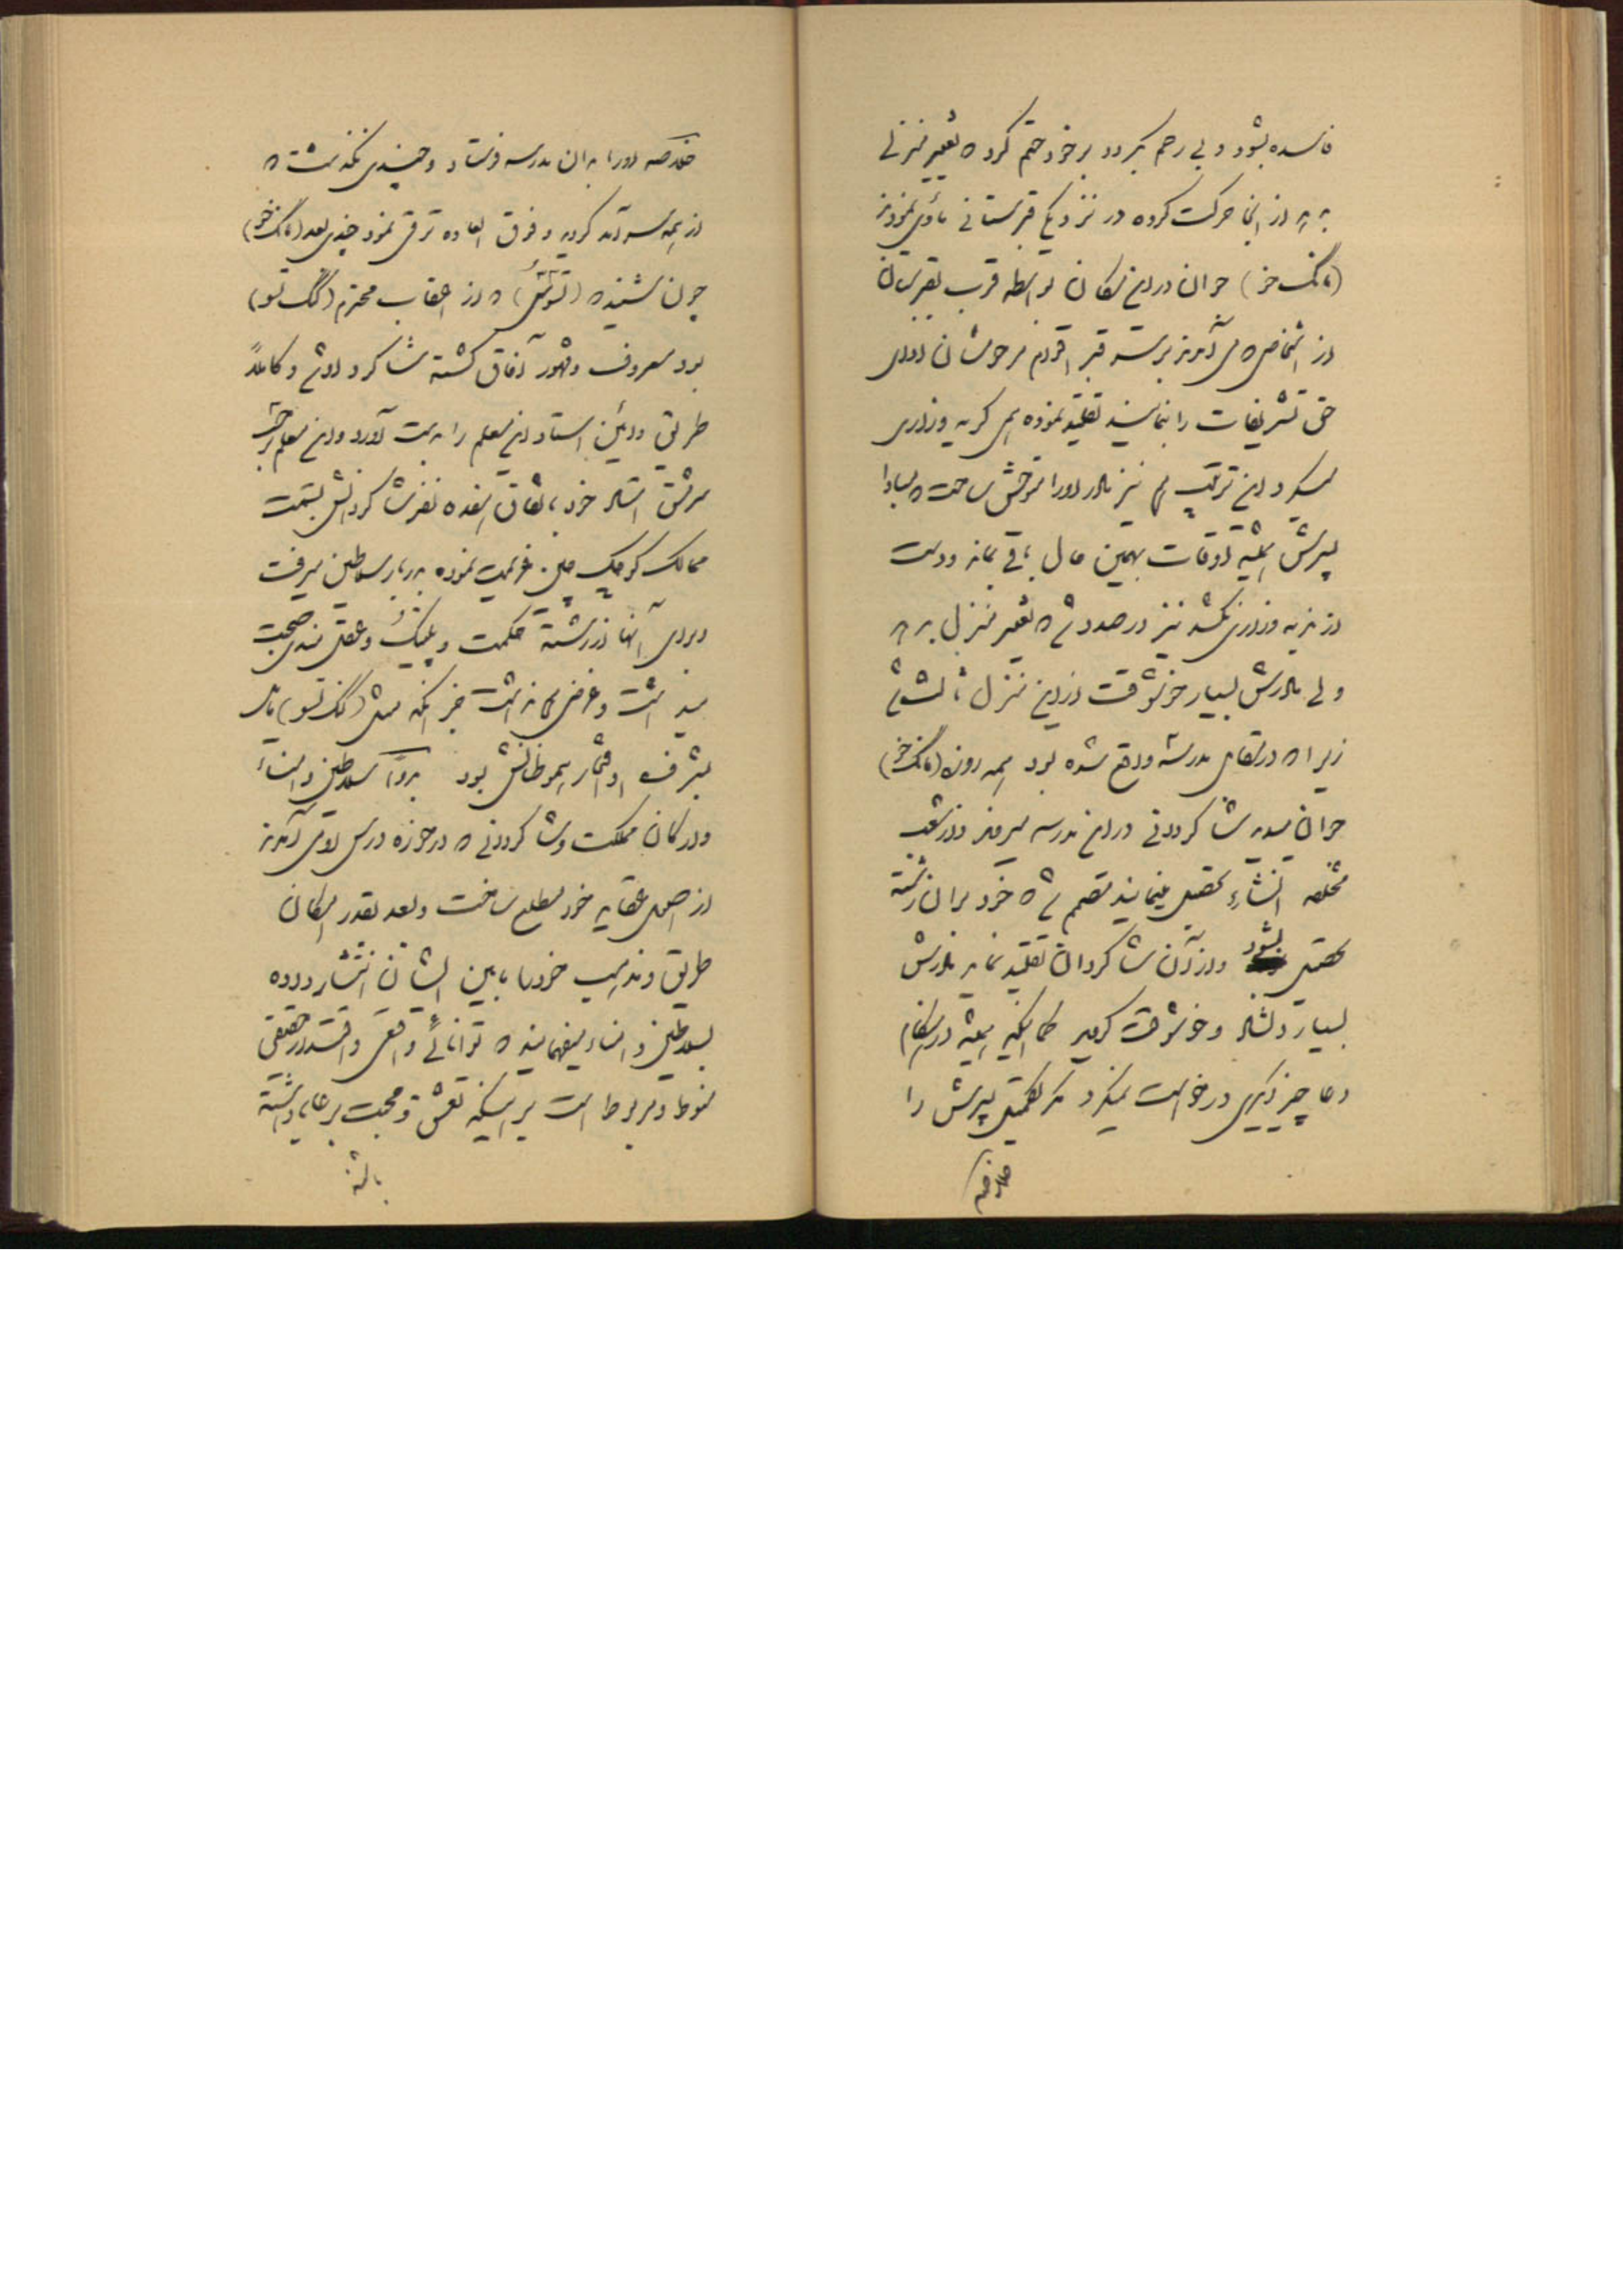 فاسده بشود و بی رحم گردد بر خود حتم کرد که تغییر منزلی
بدهد از اینجا حرکت کرده در نزدیکی قبرستانی مأوی نمودند
(مانگ خز) جوان در این مکان بواسطه قرب بقبرستان
از اشخاصی که می آمدند بر سر قبر اقوام مرحومشان ادای
حق تشریفات را بنمایند تقلید نموده همی گریه و زاری
میکرد این ترتیب هم نیز مادر او را متوحش ساخت که مبادا
پسرش همیشه اوقات بهمین حال باقی بماند و دست
از ندبه و زاری نکشد نیز در صدد شد که تغییر منزل بدهد
ولی مادرش بسیار خوشوقت از این منزل ثالث شد
زیرا که در مقابل مدرسه واقع شده بود همه روزه (مانگ خز)
جوان میدید شاگردانی در این مدرسه میروند و از شعب
مختلفه انشاء تحصیل مینمایند مصمم شد که خود بر آن رشته
تحصیل بشود و از آن شاگردان تقلید نماید مادرش
بسیار دلشاد و خوشوقت گردید همیشه در هنگام
دعا چیز دیگری درخواست نمیکرد مگر تکمیل پسرش را
خلاصه
خلاصه او را به آن مدرسه فرستاد و چندی نگذشت که
از همه سرآمد گردید و فوق العاده ترقی نمود چندی بعد (مانگ خز)
چون شنید که (تسوتسی) که از اعقاب محترم (کنگ تسو)
بود معروف و مشهور آفاق گشته شاگرد او شد و کاملاً
طریق و آئین استاد این معلم را بدست آورد و این معلم
سرمشق استاد خود باتفاق هفده نفر شاگردانش بسمت
ممالک کوچک چین عزیمت نموده بدربار سلاطین میرفت
و برای آنها از رشته حکمت و پلتیک و عقل مندی صحبت
میداشت و غرضی نداشت جز آنکه مثل (کنگ تسو) مایل
بشرف و افتخار هموطنانش بود بدواً سلاطین و امناء
و ارکان مملکت و شاگردانی که در حوزه درس او می آمدند
از اصول عقاید خود مطلع ساخت و بعد بقدر امکان
طریق و مذهب خود را مابین ایشان انتشار داده
بسلاطین و امناء میفهمانید که توانائی واقعی و اقتدار حقیقی
منوط و مربوط است بر اینکه تعشق و محبت بر رعایا داشته
باشد